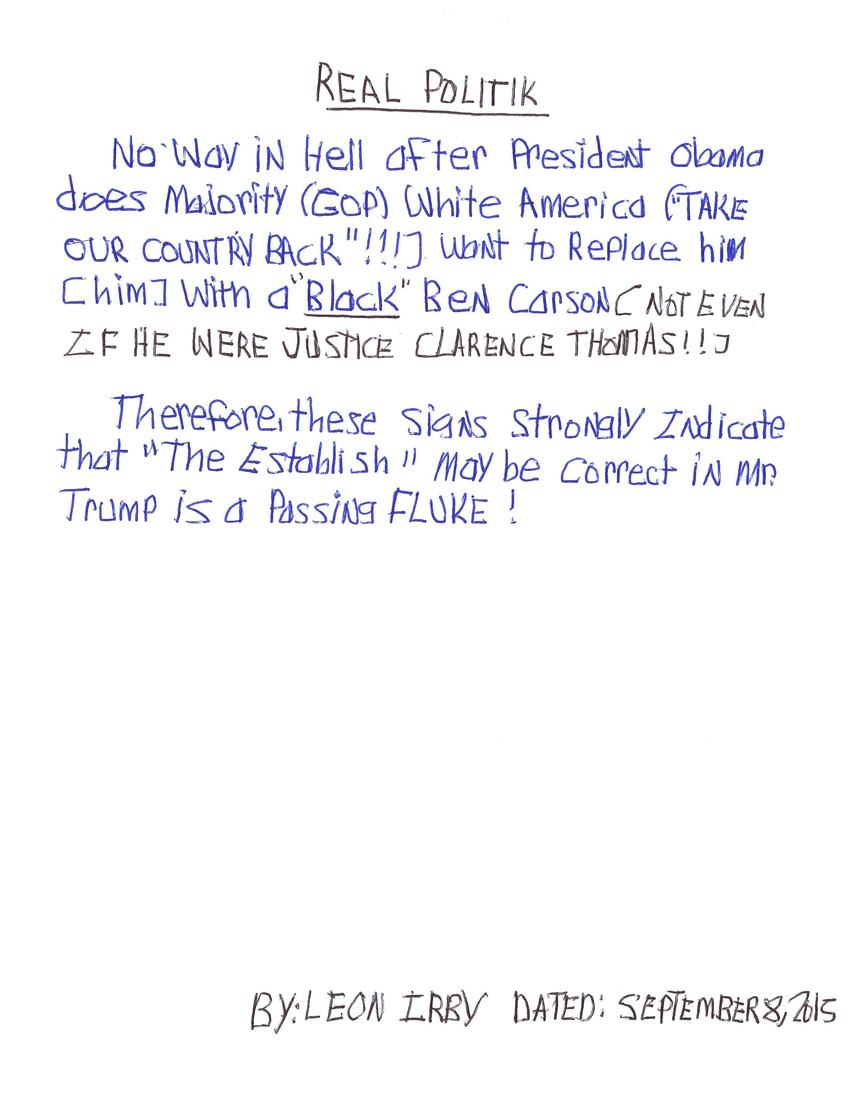 REAL POLITIK
No Way in Hell after President Obama
does Majority (GOP) White America ("TAKE
OUR COUNTRY BACK"!!!] want to Replace him
[him] with a "Black" Ben Carson ( NOT EVEN
IF HE WERE JUSTICE CLARENCE THOMAS!!]
Therefore, these signs strongly Indicate
that "The Establish" may be correct in Mr.
Trump is a Passing FLUKE !
BY: LEON IRBY DATED: SEPTEMBER 8, 2015